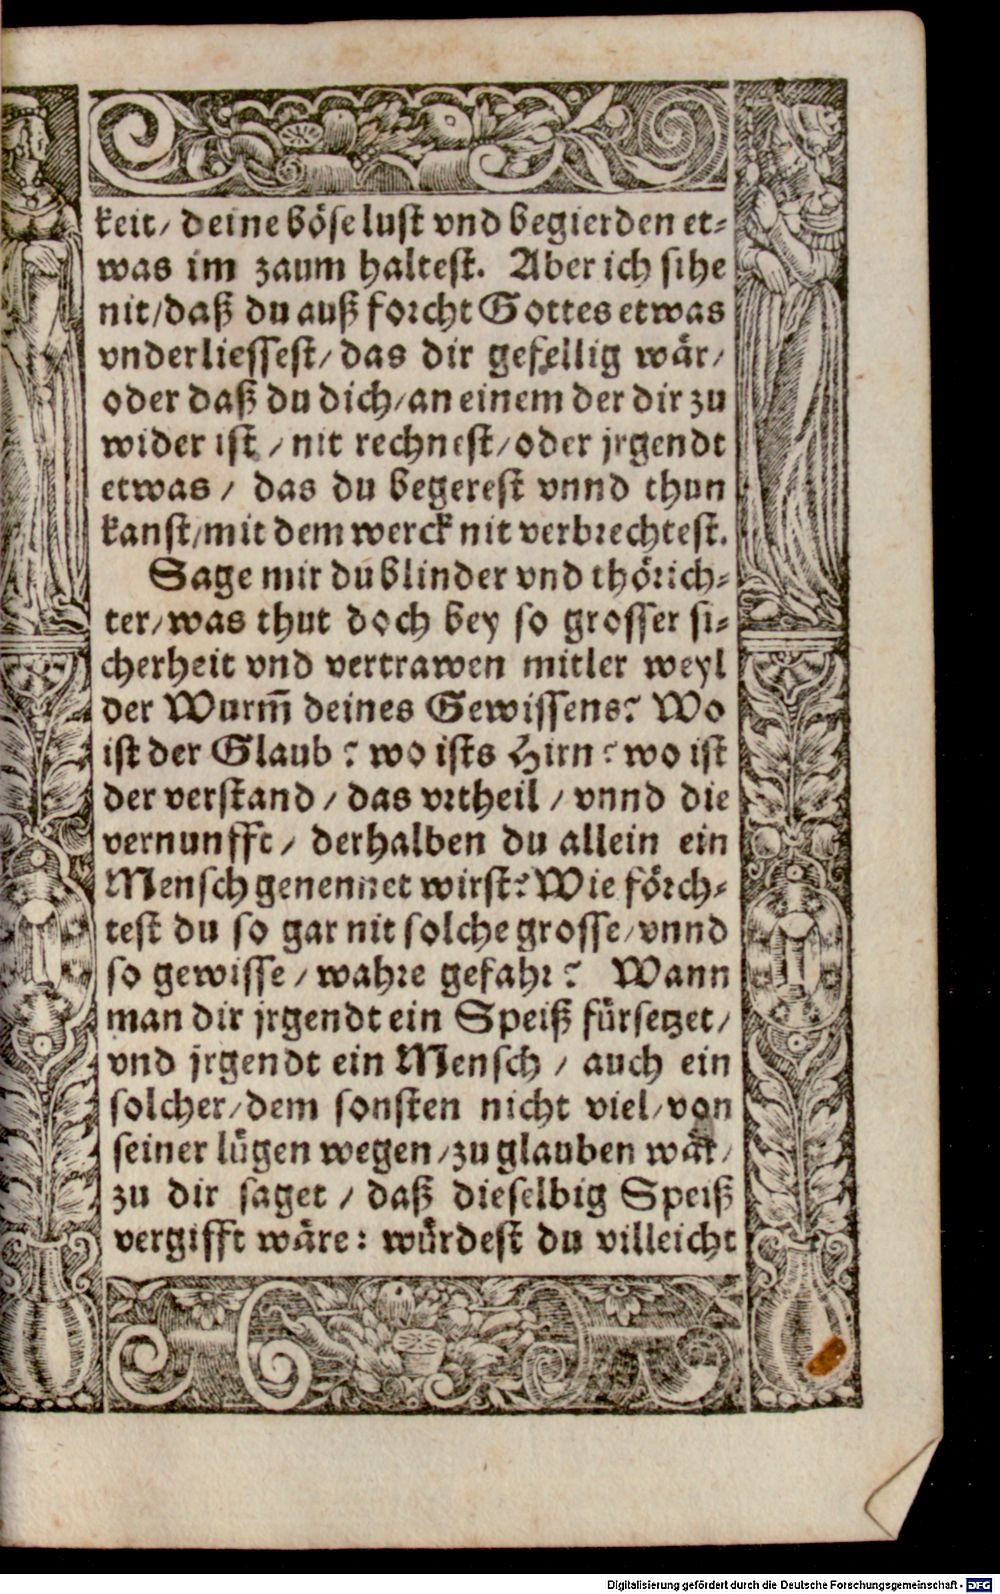 keit/ deine böse lust vnd begierden et⸗
was im zaum haltest. Aber ich sihe
nit/daß du auß forcht Gottes etwas
vnderliessest/ das dir gefellig wär/
oder daß du dich/an einem der dir zu
wider ist / nit rechnest/oder jrgendt
etwas / das du begerest vnnd thun
kanst/mit dem werck nit verbrechtest.
Sage mir du blinder vnd thörich⸗
ter/was thut doch bey so grosser si⸗
cherheit vnd vertrawen mitler weyl
der Wurm̃ deines Gewissens? Wo
ist der Glaub? wo ists Hirn? wo ist
der verstand / das vrtheil / vnnd die
vernunfft / derhalben du allein ein
Mensch genennet wirst? Wie förch⸗
test du so gar nit solche grosse/vnnd
so gewisse / wahre gefahr? Wann
man dir jrgendt ein Speiß fürsetzet/
vnd jrgendt ein Mensch / auch ein
solcher/dem sonsten nicht viel/von
seiner lügen wegen/zu glauben wär/
zu dir saget / daß dieselbig Speiß
vergifft wäre: würdest du villeicht
Digitalisierung gefördert durch die Deutsche Forschungsgemeinschaft - DFG